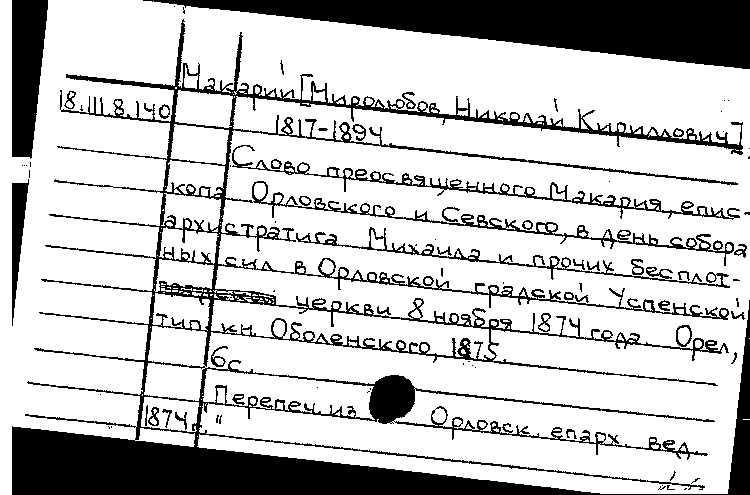 Макарий [Миролюбов, Николай Кириллович]
18.III.8.140
1817-1894.
Слово преосвященного Макария, епис-
копа Орловского и Севского, в день собора
архистратига Михаила и прочих бесплот-
ных сил в Орловской градской Успенской
церкви 8 ноября 1874 года. Орел,
тип. кн. Оболенского, 1875.
6с.
"Перепеч. из Орловск. епарх. вед.
1874 г."